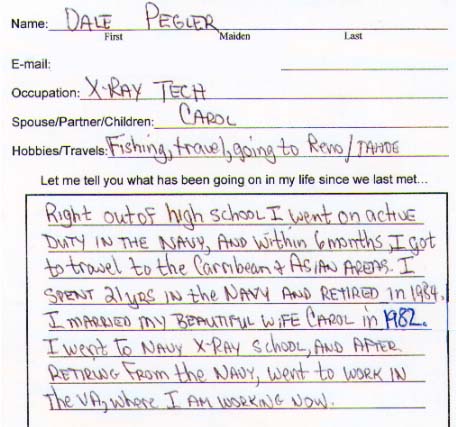 Name: DALE PEGLER
First Maiden Last
E-mail:
Occupation: X-RAY TECH
Spouse/Partner/Children: CAROL
Hobbies/Travels: Fishing, travel, going to Reno/TAHOE
Let me tell you what has been going on in my life since we last met...
Right out of high school I went on active
DUTY IN THE NAVY, AND within 6 months, I got
to travel to the Carribean & ASIAN AREAS. I
SPENT 21 yrs IN the NAVY AND RETIRED in 1984.
I MARRIED my BEAUTIFUL WIFE CAROL in 1982.
I went to NAVY X-RAY School, AND AFTER
RETIRING From the NAVY, went to WORK IN
The VA, where I AM WORKING NOW.